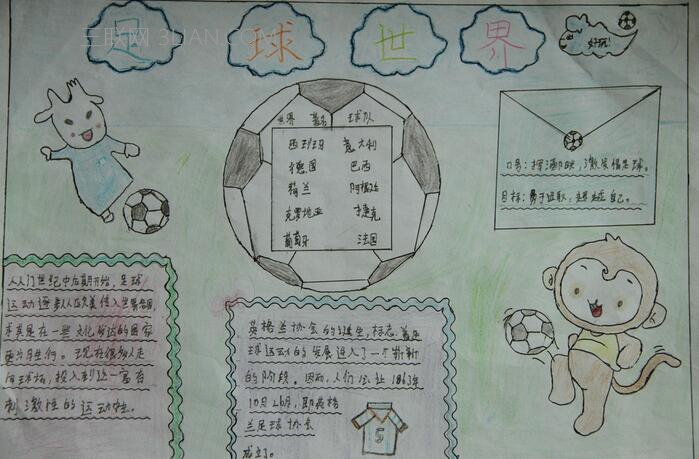 三联网 3LIAN.COM
足球世界
好玩!
世界 著名 球队
西班牙 意大利
德国 巴西
荷兰 阿根廷
克罗地亚 捷克
葡萄牙 法国
口号:挥洒,激发情足球。
目标:勇于进取,超越自己。
世纪中后期开始,足球
运动逐从欧美传入世界各国,
尤其是在一些文化发达的国家
更为。现在很多人走
向球场,投入到这一富有
刺激性的运动中。
英格兰协会的诞生,标志着足
球运动的发展进入了一个崭新
的阶段。因而,人们公认1863年
10月26月,即英格
兰足球协会
成立了。
5